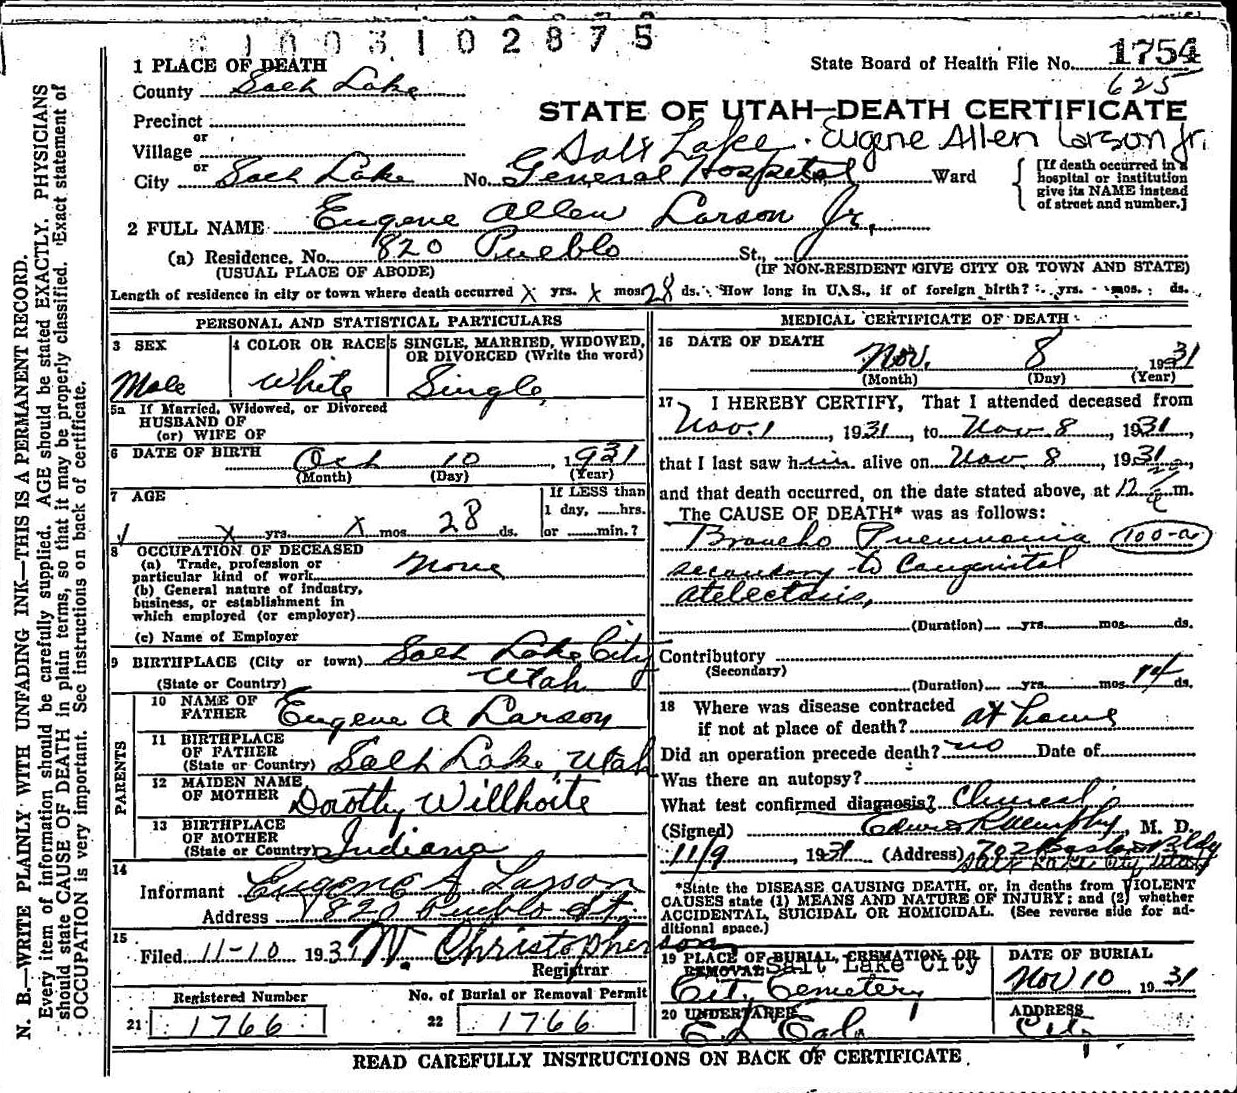 0 1 0 0 3 1 0 2 8 7 5
1 PLACE OF DEATH
State Board of Health File No. 1754
625
County Salt Lake
STATE OF UTAH—DEATH CERTIFICATE
Precinct
or
Village
Salt Lake · Eugene Allen Larson Jr.
or
City Salt Lake No. General Hospital St., Ward
[If death occurred in a
hospital or institution
give its NAME instead
of street and number.]
2 FULL NAME Eugene Allen Larson Jr.
(a) Residence. No. 820 Pueblo St.,
(USUAL PLACE OF ABODE) (IF NON-RESIDENT GIVE CITY OR TOWN AND STATE)
Length of residence in city or town where death occurred X yrs. X mos. 28 ds. How long in U.S., if of foreign birth? yrs. mos. ds.
PERSONAL AND STATISTICAL PARTICULARS
3 SEX
Male
4 COLOR OR RACE
White
5 SINGLE, MARRIED, WIDOWED,
OR DIVORCED (Write the word)
Single
5a If Married, Widowed, or Divorced
HUSBAND OF
(or) WIFE OF
6 DATE OF BIRTH
Oct 10, 1931
(Month) (Day) (Year)
7 AGE
If LESS than
1 day, hrs.
X yrs. X mos. 28 ds. or min.?
8 OCCUPATION OF DECEASED
(a) Trade, profession or
particular kind of work None
(b) General nature of industry,
business, or establishment in
which employed (or employer)
(c) Name of Employer
9 BIRTHPLACE (City or town) Salt Lake City
(State or Country) Utah
PARENTS
10 NAME OF
FATHER Eugene A Larson
11 BIRTHPLACE
OF FATHER
(State or Country) Salt Lake, Utah
12 MAIDEN NAME
OF MOTHER Dorothy Willhoite
13 BIRTHPLACE
OF MOTHER
(State or Country) Indiana
14
Informant Eugene A Larson
Address 820 Pueblo St.
15
Filed 11-10 1931 W. Christopherson
Registrar
Registered Number
21 1766
No. of Burial or Removal Permit
22 1766
MEDICAL CERTIFICATE OF DEATH
16 DATE OF DEATH
Nov. 8 1931
(Month) (Day) (Year)
17 I HEREBY CERTIFY, That I attended deceased from
Nov. 1, 1931, to Nov. 8, 1931,
that I last saw him alive on Nov. 8, 1931,
and that death occurred, on the date stated above, at 12 m.
The CAUSE OF DEATH* was as follows:
Broncho Pneumonia 100-a
secondary to Congenital
atelectasis,
(Duration) yrs. mos. ds.
Contributory
(Secondary)
(Duration) yrs. mos. 14 ds.
18 Where was disease contracted
if not at place of death? at home
Did an operation precede death? no Date of
Was there an autopsy?
What test confirmed diagnosis? Clinical
(Signed) M. D.
11/9, 1931 (Address) 702 Bldg
Salt Lake City Utah
*State the DISEASE CAUSING DEATH, or, in deaths from VIOLENT
CAUSES state (1) MEANS AND NATURE OF INJURY; and (2) whether
ACCIDENTAL, SUICIDAL OR HOMICIDAL. (See reverse side for ad-
ditional space.)
19 PLACE OF BURIAL, CREMATION, OR
REMOVAL Salt Lake City
City Cemetery
DATE OF BURIAL
Nov 10 1931
20 UNDERTAKER
ADDRESS
City
READ CAREFULLY INSTRUCTIONS ON BACK OF CERTIFICATE.
N. B.—WRITE PLAINLY WITH UNFADING INK—THIS IS A PERMANENT RECORD.
Every item of information should be carefully supplied. AGE should be stated EXACTLY. PHYSICIANS
should state CAUSE OF DEATH in plain terms, so that it may be properly classified. Exact statement of
OCCUPATION is very important. See instructions on back of certificate.